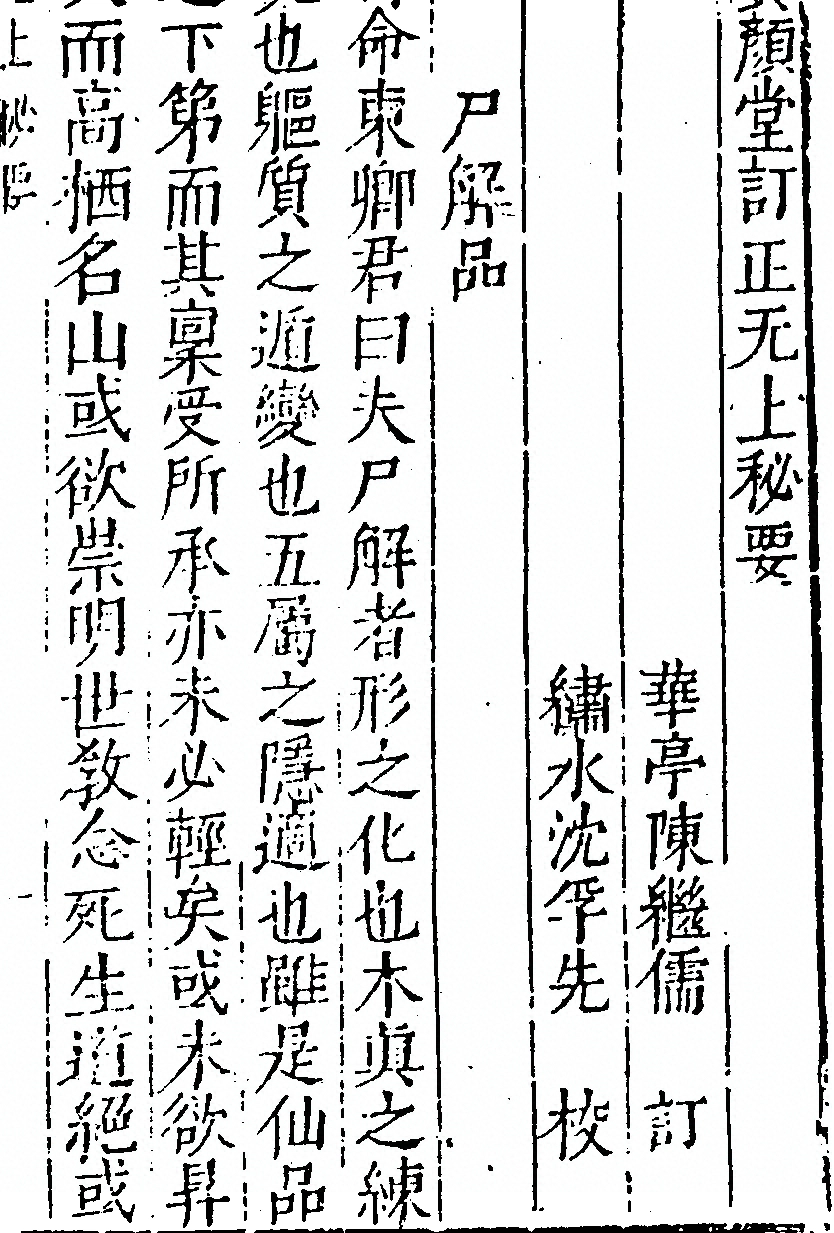 顏堂訂正无上秘要
華亭陳繼儒 訂
繡水沈孚先 校
尸解品
命東卿君曰夫尸解者形之化也木眞之練
也軀質之遁變也五屬之隱適也雖是仙品
下第而其稟受所承亦未必輕矣或未欲昇
而高栖名山或欲崇明世敎念死生道絕或
上秘要